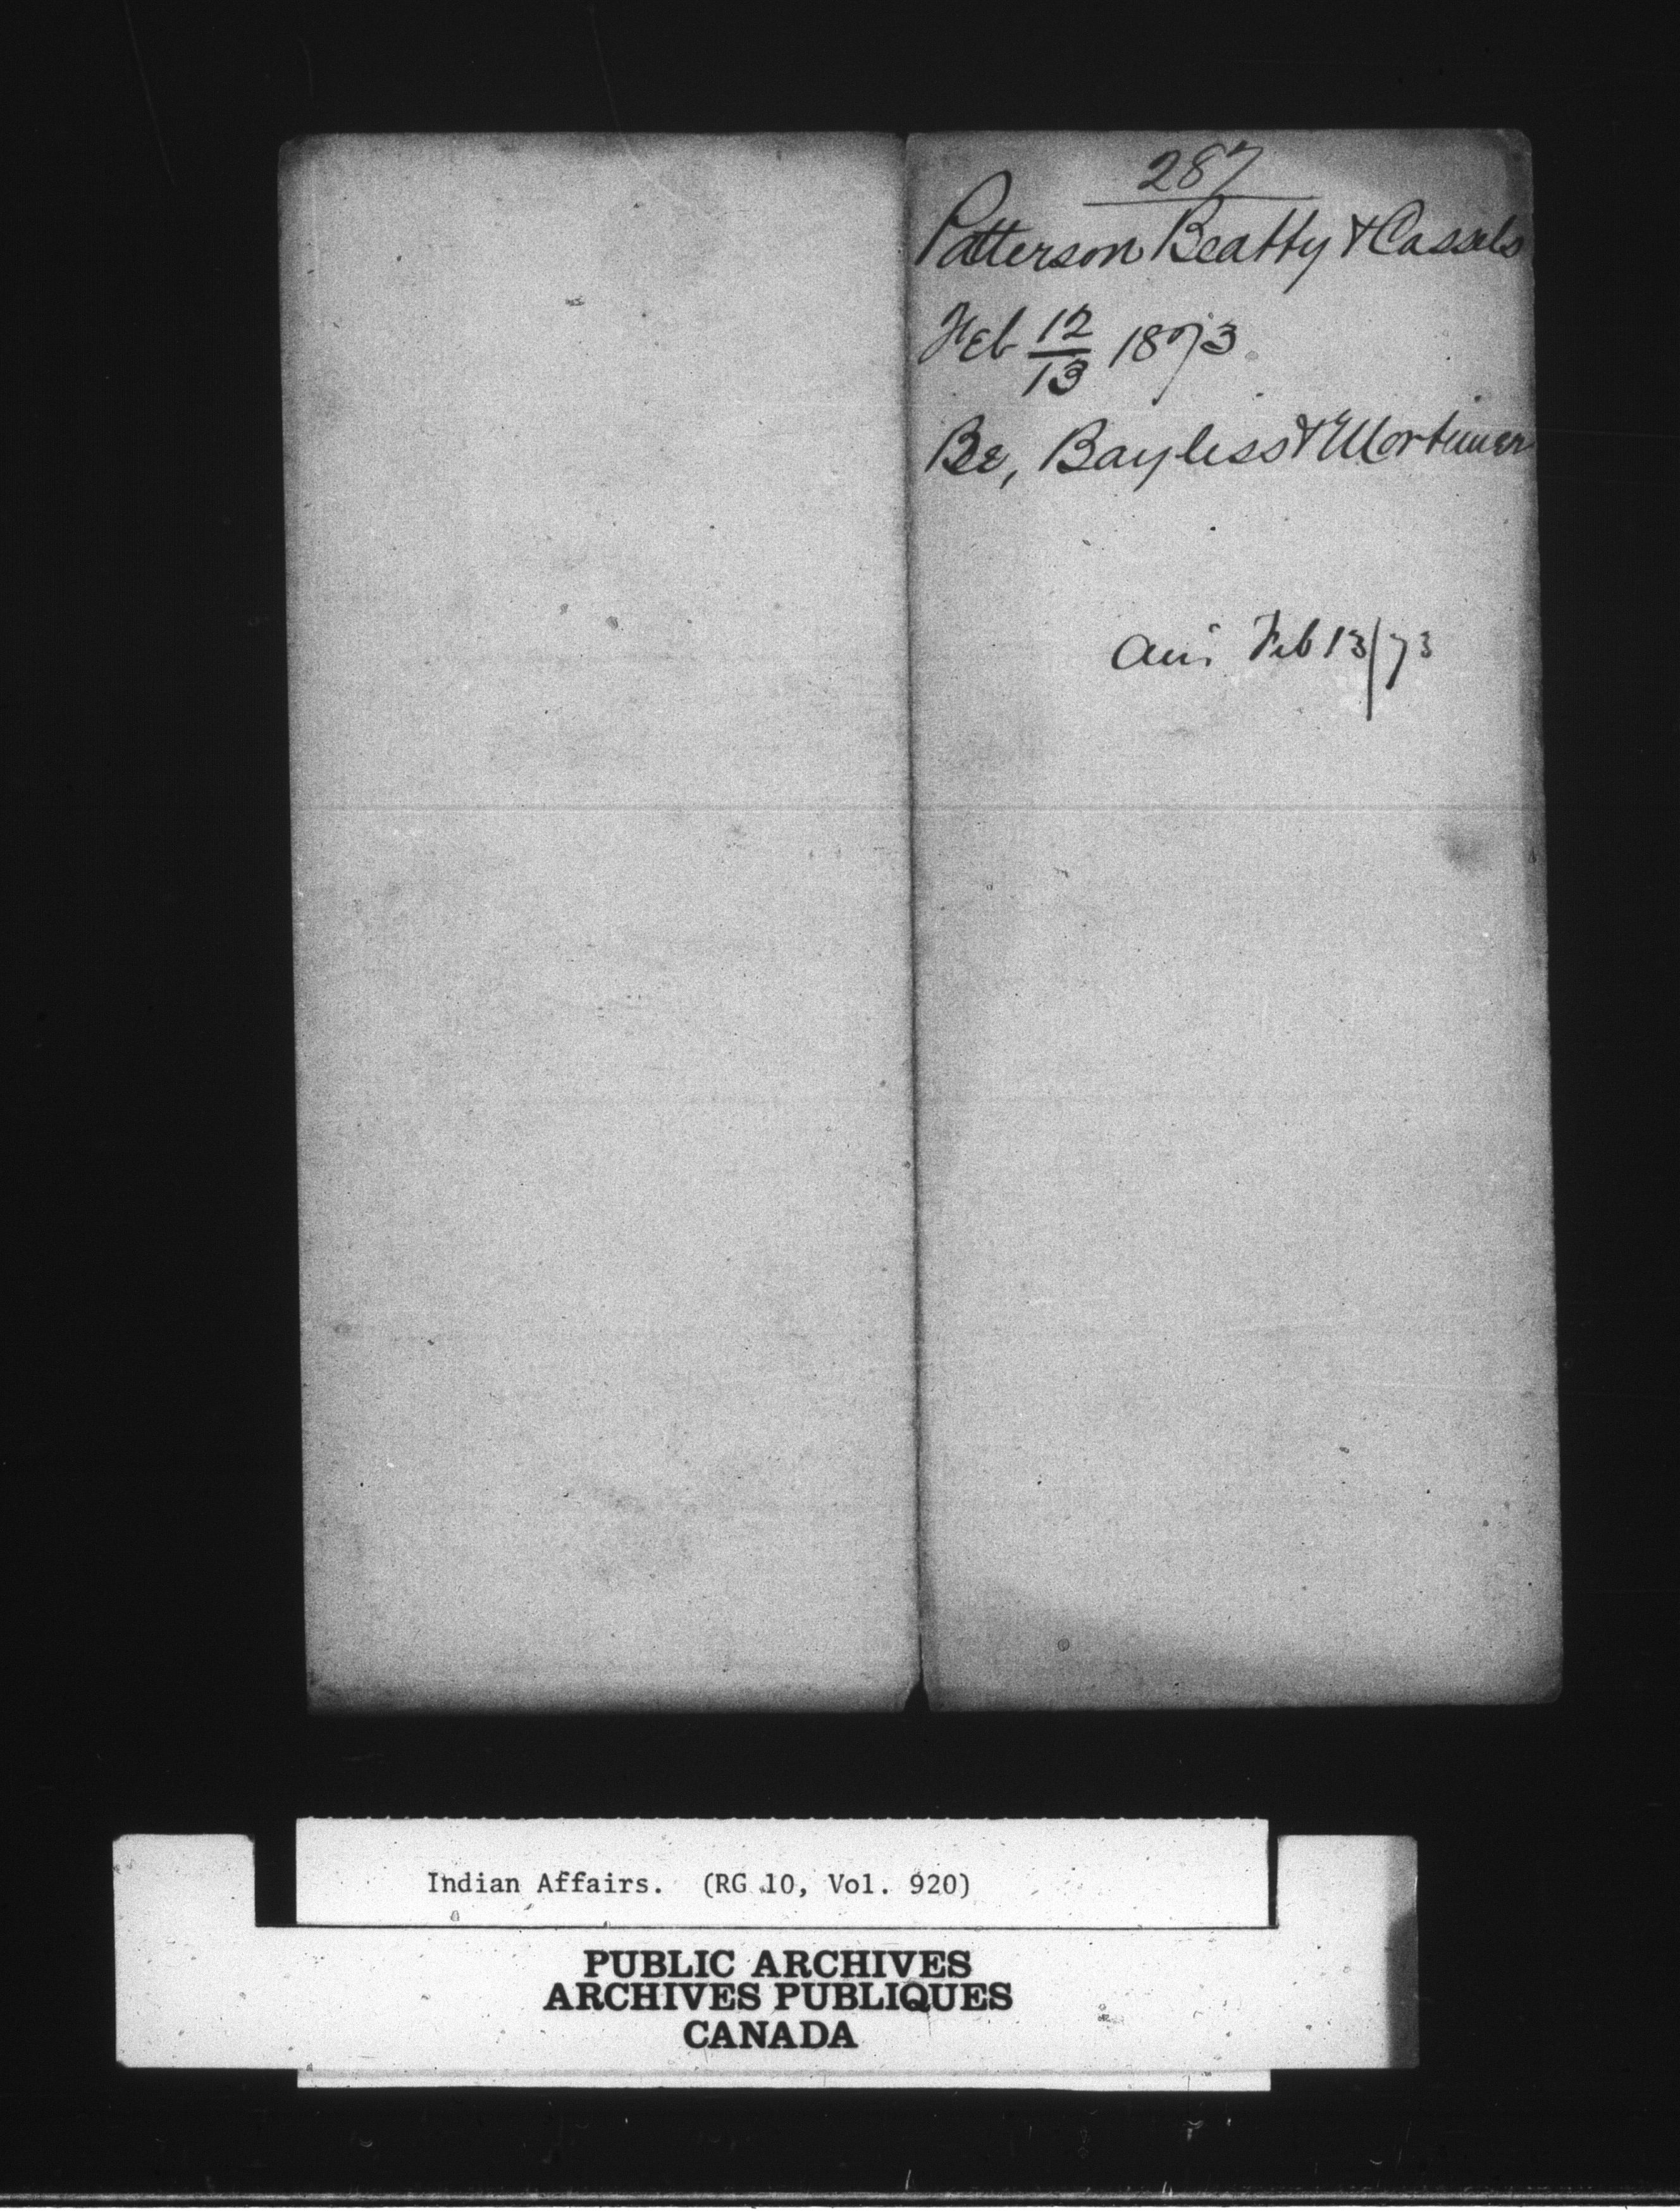 287
Patterson Beatty & Cassels
Feb 12/13 1873
Re, Bayliss & Mortimer
Ans Feb 13/73
Indian Affairs. (RG 10, Vol. 920)
PUBLIC ARCHIVES
ARCHIVES PUBLIQUES
CANADA